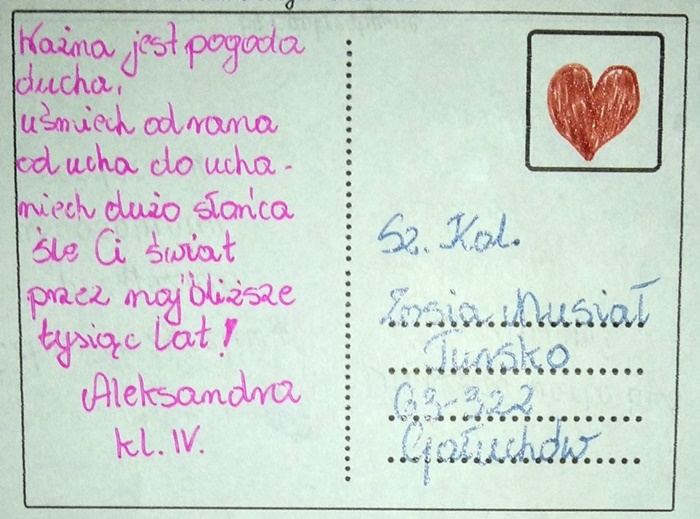 Ważna jest pogoda
ducha,
uśmiech od rana
od ucha do ucha -
niech dużo słońca
śle Ci świat
przez najbliższe
tysiąc lat!
Aleksandra
kl. IV.
Sz. Kol.
Zosia Musiał
Tursko
63-322
Gołuchów